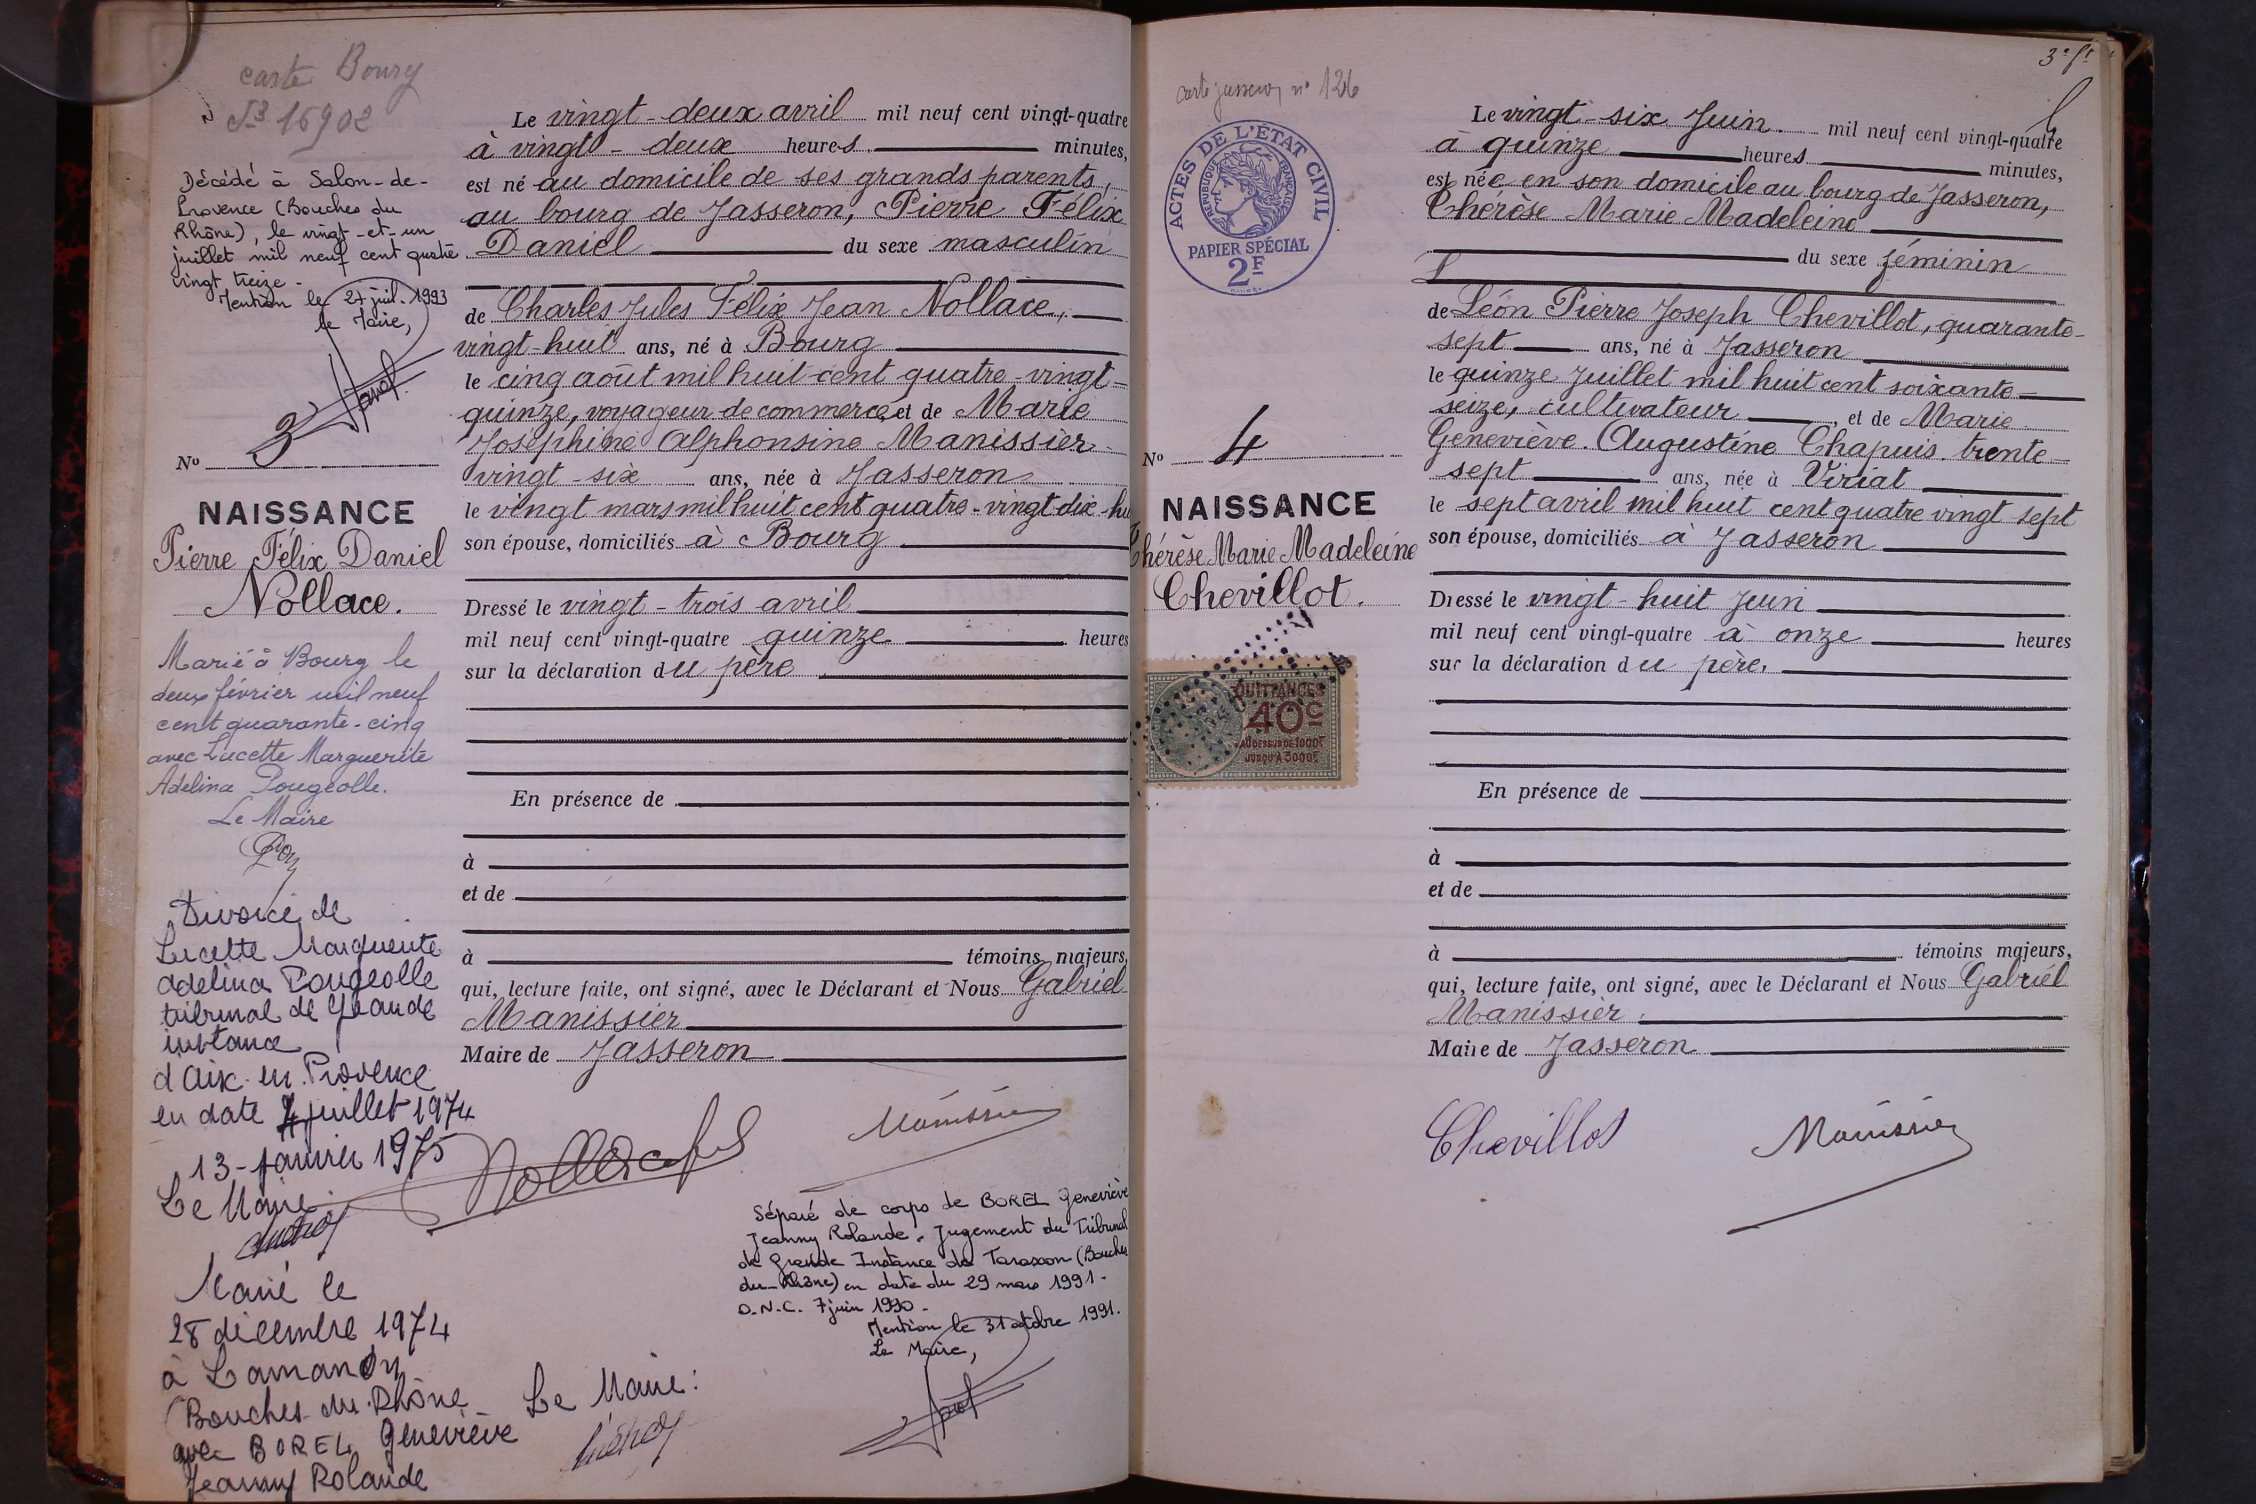 carte Bourg
16902
Décédé à Salon-de-
Provence (Bouches du
Rhône), le vingt-et-un
juillet mil neuf cent quatre
vingt treize.
Mention le 27 juil. 1993
le Maire,
No 3
NAISSANCE
Pierre Félix Daniel
Nollace.
Marié à Bourg le
deux février mil neuf
cent quarante-cinq
avec Lucette Marguerite
Adelina Pougeolle.
Le Maire
Divorcé de
Lucette Marguerite
adelina Pougeolle
tribunal de Grande
instance
d'Aix en Provence
en date 4 juillet 1974
13-janvier 1975
Le Maire
Marié le
28 décembre 1974
à Lamanon
(Bouches-du-Rhône
avec BOREL Geneviève
Jeanny Rolande
Le Maire:
Le vingt-deux avril mil neuf cent vingt-quatre
à vingt-deux heures minutes,
est né au domicile de ses grands parents,
au bourg de Jasseron, Pierre Félix
Daniel du sexe masculin
de Charles Jules Félix Jean Nollace,
vingt-huit ans, né à Bourg
le cinq août mil huit cent quatre-vingt-
quinze, voyageur de commerce, et de Marie
Joséphine Alphonsine Manissier
vingt-six ans, née à Jasseron
le vingt mars mil huit cent quatre-vingt-dix-hu
son épouse, domiciliés à Bourg
Dressé le vingt-trois avril
mil neuf cent vingt-quatre quinze heures
sur la déclaration du père
En présence de
à
et de
à témoins majeurs,
qui, lecture faite, ont signé, avec le Déclarant et Nous Gabriel
Manissier
Maire de Jasseron
Nollace fils
Manissier
Séparé de corps de BOREL Geneviève
Jeanny Rolande. Jugement du Tribunal
de Grande Instance de Tarascon (Bouches
du-Rhône) en date du 29 mars 1991.
O.N.C. 7 juin 1990.
Mention le 31 octobre 1991.
Le Maire,
3e ft
carte Jasseron n° 126
ACTES DE L'ÉTAT CIVIL
RÉPUBLIQUE FRANÇAISE
PAPIER SPÉCIAL
2F
No 4
NAISSANCE
Thérèse Marie Madeleine
Chevillot.
QUITTANCES
40c
AU DESSUS DE 1000F
JUSQU'A 3000F
Le vingt-six Juin. mil neuf cent vingt-quatre
à quinze heures minutes,
est née en son domicile au bourg de Jasseron,
Thérèse Marie Madeleine
du sexe féminin
de Léon Pierre Joseph Chevillot, quarante-
sept ans, né à Jasseron
le quinze Juillet mil huit cent soixante-
seize, cultivateur, et de Marie
Geneviève Augustine Chapuis. trente-
sept ans, née à Viriat
le sept avril mil huit cent quatre vingt sept
son épouse, domiciliés à Jasseron
Dressé le vingt-huit Juin
mil neuf cent vingt-quatre à onze heures
sur la déclaration du père,
En présence de
à
et de
à témoins majeurs,
qui, lecture faite, ont signé, avec le Déclarant et Nous Gabriel
Manissier.
Maire de Jasseron
Chevillot
Manissier